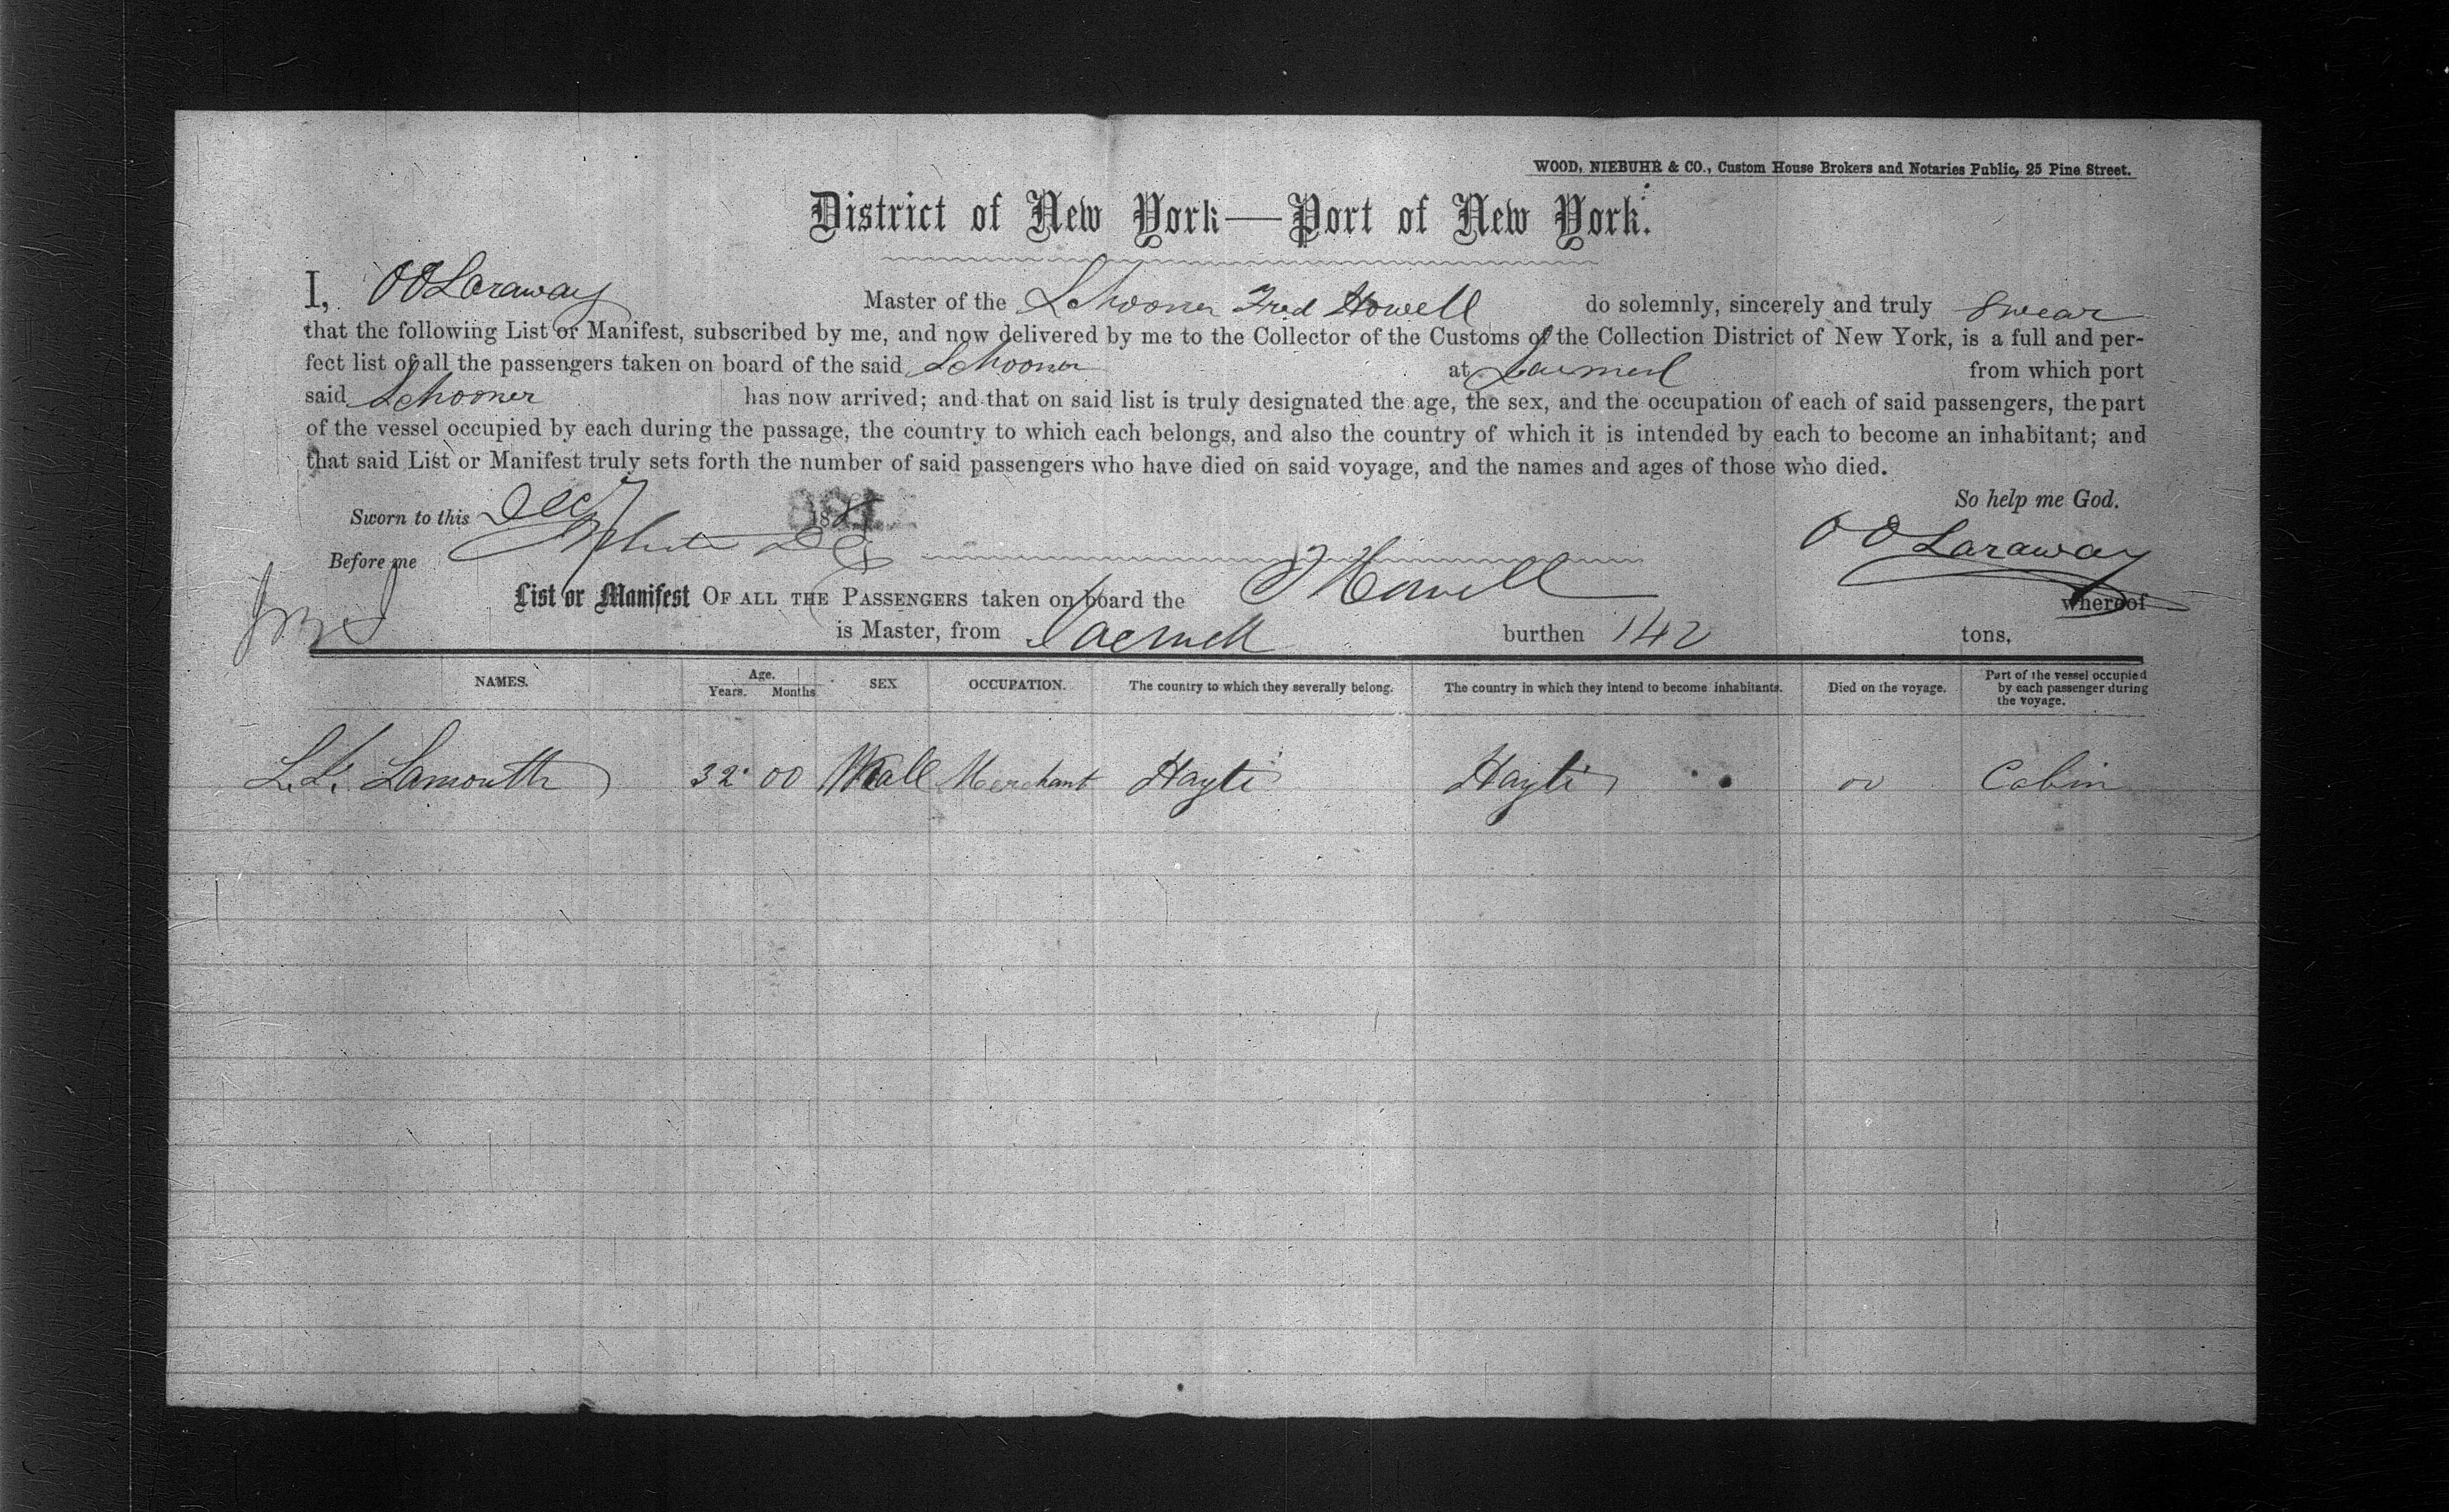 WOOD, NIEBUHR & CO., Custom House Brokers and Notaries Public, 25 Pine Street.
District of New York—Port of New York.
I, O O Laraway Master of the Schooner Fred Howell do solemnly, sincerely and truly swear
that the following List or Manifest, subscribed by me, and now delivered by me to the Collector of the Customs of the Collection District of New York, is a full and per-
fect list of all the passengers taken on board of the said Schooner at Jacmel from which port
said Schooner has now arrived; and that on said list is truly designated the age, the sex, and the occupation of each of said passengers, the part
of the vessel occupied by each during the passage, the country to which each belongs, and also the country of which it is intended by each to become an inhabitant; and
that said List or Manifest truly sets forth the number of said passengers who have died on said voyage, and the names and ages of those who died.
So help me God.
Sworn to this Dec 7 188
Before me
O O Laraway
List or Manifest OF ALL THE PASSENGERS taken on board the F Howell whereof
is Master, from burthen 142 tons.
NAMES. Age. Years. Months SEX OCCUPATION. The country to which they severally belong. The country in which they intend to become inhabitants. Died on the voyage. Part of the vessel occupied by each passenger during the voyage.
L. L. Lamouth 32 00 Male Merchant Hayti Hayti 00 Cabin